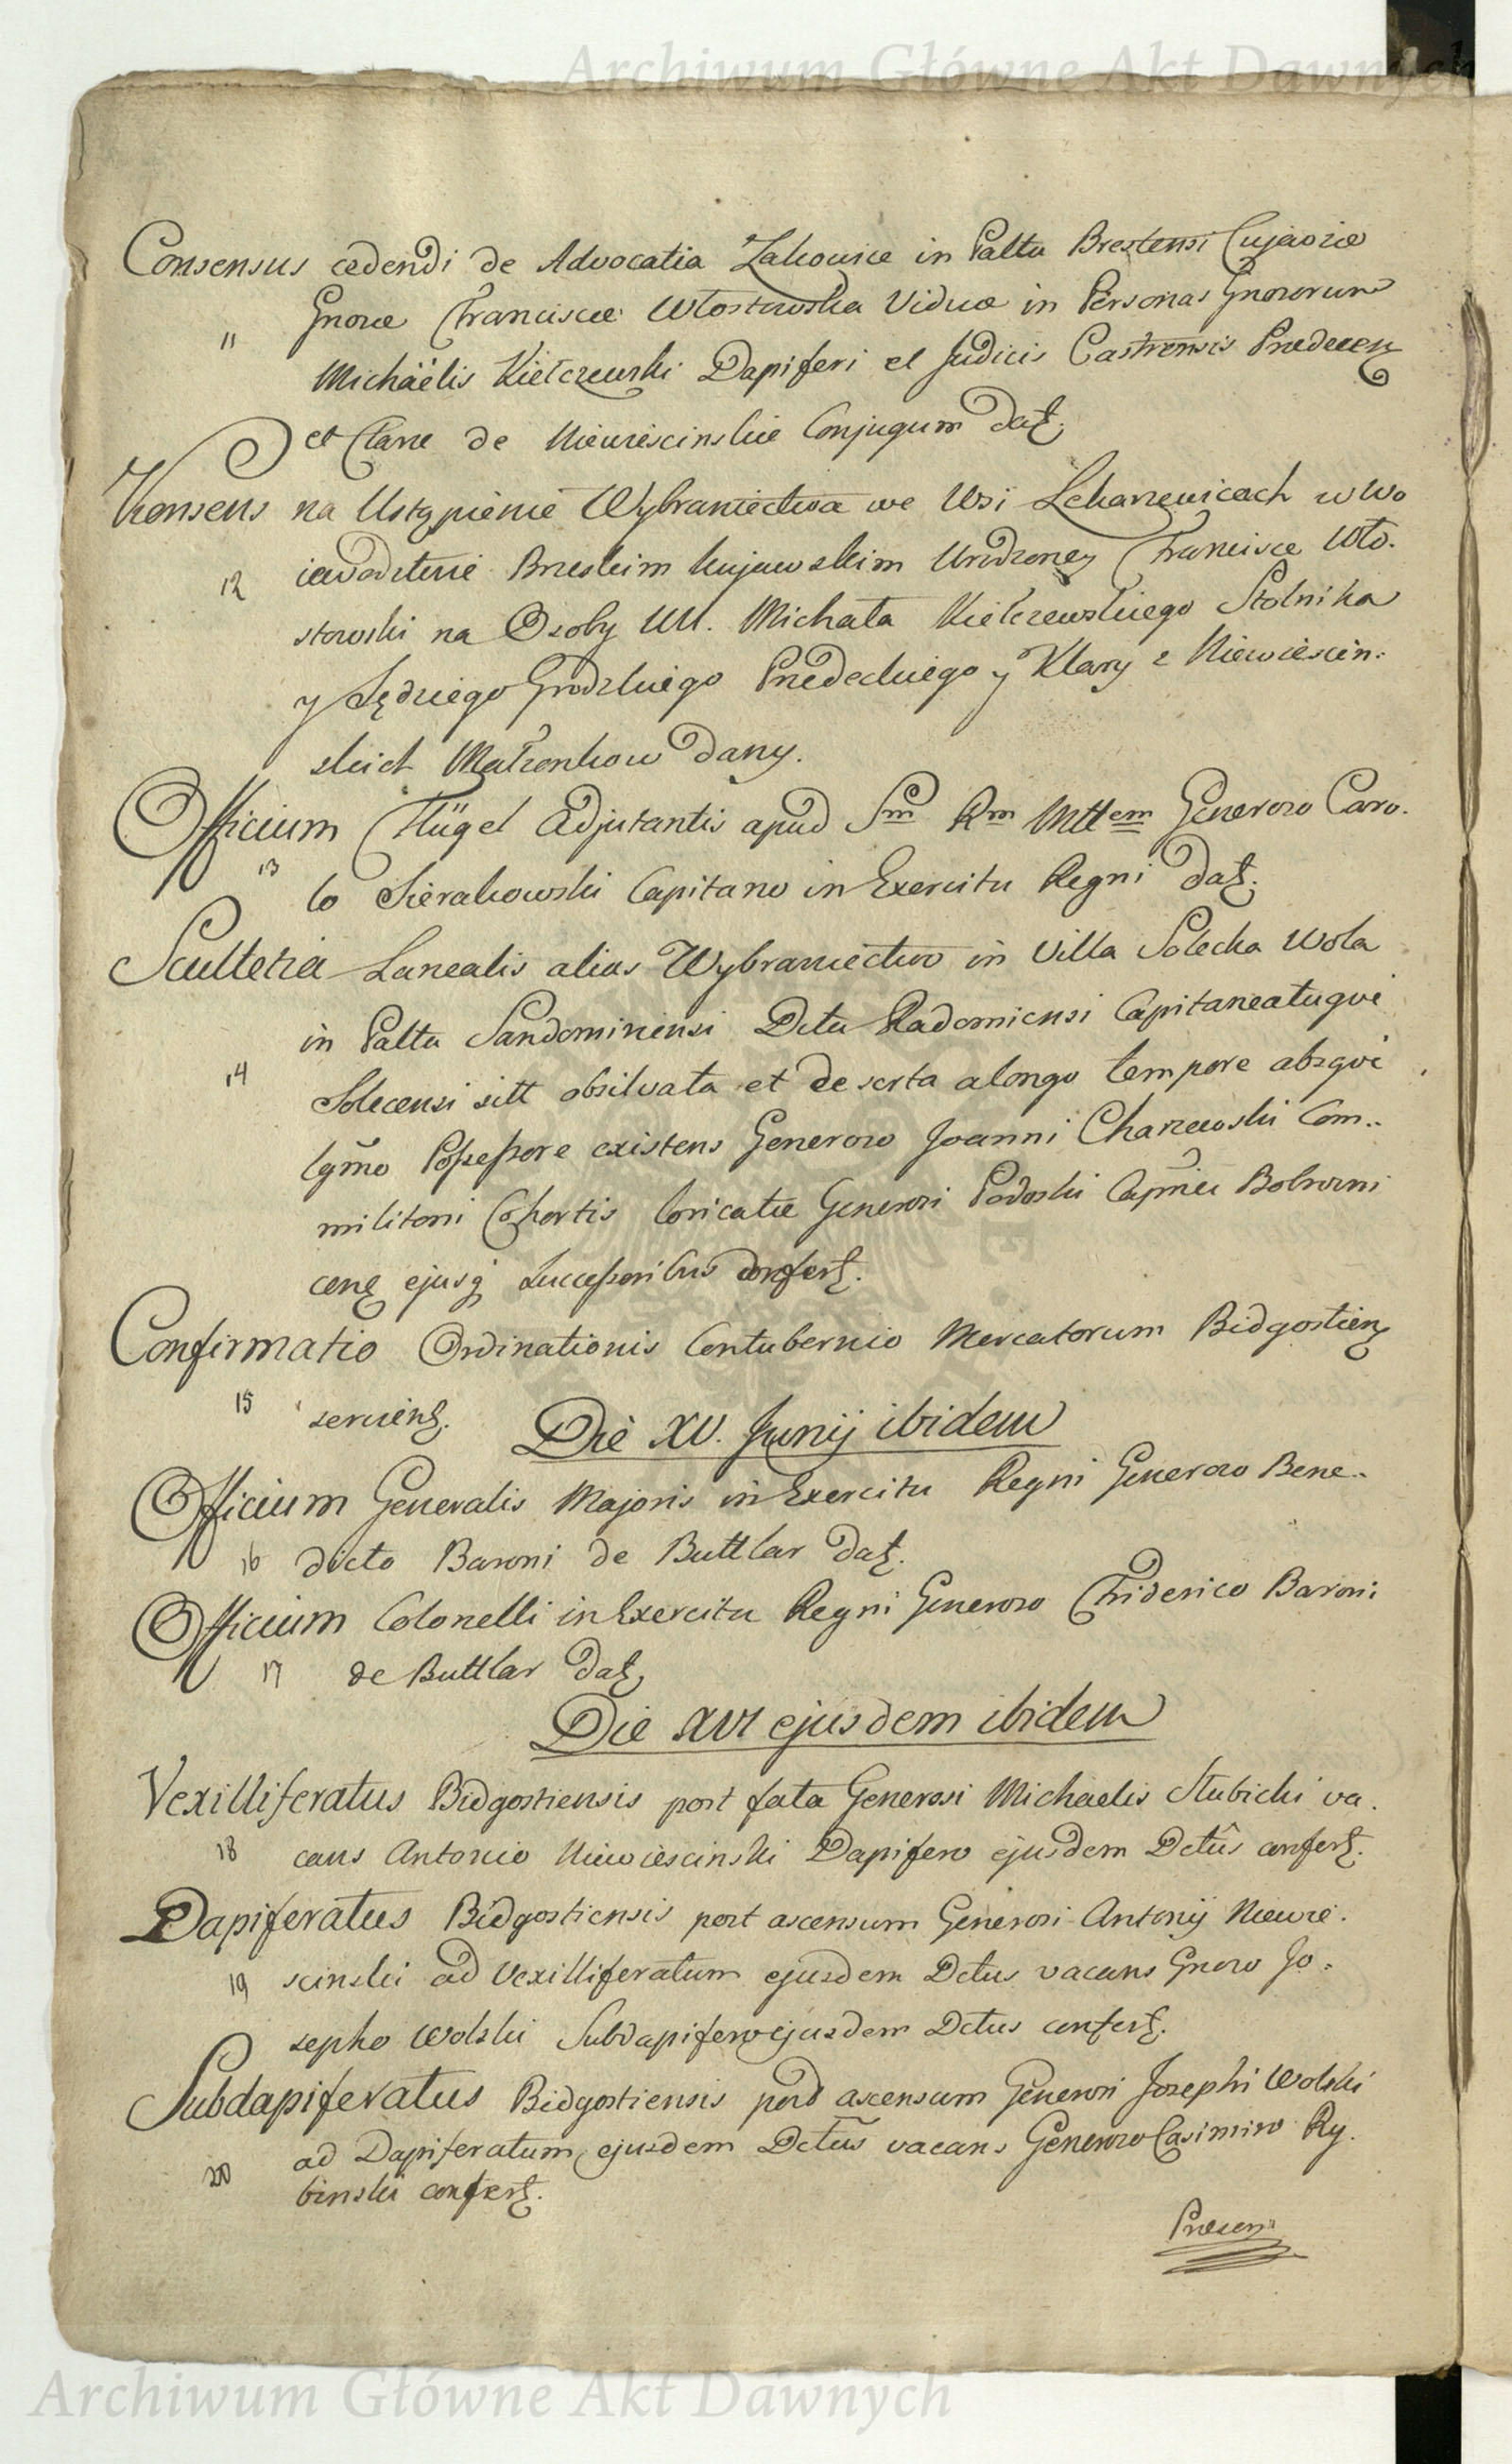 Archiwum Główne Akt Dawnych
Consensus cedendi de Advocatia Zakowice in Palttu Brestensi Cujaviae
Gnorae Franciscae Włostowska Viduae in Personas Gnororum
11
Michäelis Kiełczewski Dapiferi et Judicis Castrensis Predecen
et Clarae de Niewiescinskie Conjugum Dat.
Konsens na Ustąpienie Wybraniectwa we Wsi Lekarzewicach w Wo
iewodztwie Brzeskim Kujawskim Urodzoney Francisce Wło.
12
stowski na Osoby UU. Michała Kiełczewskiego Stolnika
y Sędziego Grodzkiego Przedeckiego y Klary z Niewiescin.
skich Małżonkow Dany.
Officium Flügel Adjutantis apud Sm Rm Mttem Generoso Caro.
13
lo Sierakowski Capitano in Exercitu Regni Dat.
Scultetia Lanealis alias Wybraniectwo in Villa Solecka Wola
in Palttu Sandomiriensi Dctu Radomiensi Capitaneatuqve
14
Solecensi sitt obsilvata et deserta a longo tempore absqve
lgmo Possessore existens Generoso Joanni Charzewski Com..
militoni Cohortis loricatae Generosi Podoski Capnei Bobrowni
cen ejusq Successoribus confert.
Confirmatio Ordinationis Contubernio Mercatorum Bidgostien
15
servient.
Die XV. Junij ibidem
Officium Generalis Majoris in Exercitu Regni Generoso Bene..
16 dicto Baroni de Buttlar Dat.
Officium Colonelli in Exercitu Regni Generoso Friderico Baroni
17 de Buttlar Dat.
Die XVI ejusdem ibidem
Vexilliferatus Bidgostiensis post fata Generosi Michaelis Słubicki va.
18 cans Antonio Niewiescinski Dapifero ejusdem Dctûs confert.
Dapiferatus Bidgostiensis post ascensum Generosi Antonij Niewie.
19 scinski ad Vexilliferatum ejusdem Dctus vacans Gnoro Jo.
sepho Wolski Subdapifero ejusdem Dctus confert.
Subdapiferatus Bidgostiensis post ascensum Generosi Josephi Wolski
ad Dapiferatum ejusdem Dctus vacans Generoso Casimiro Ry.
20
binski confert.
Praesen.
Archiwum Główne Akt Dawnych